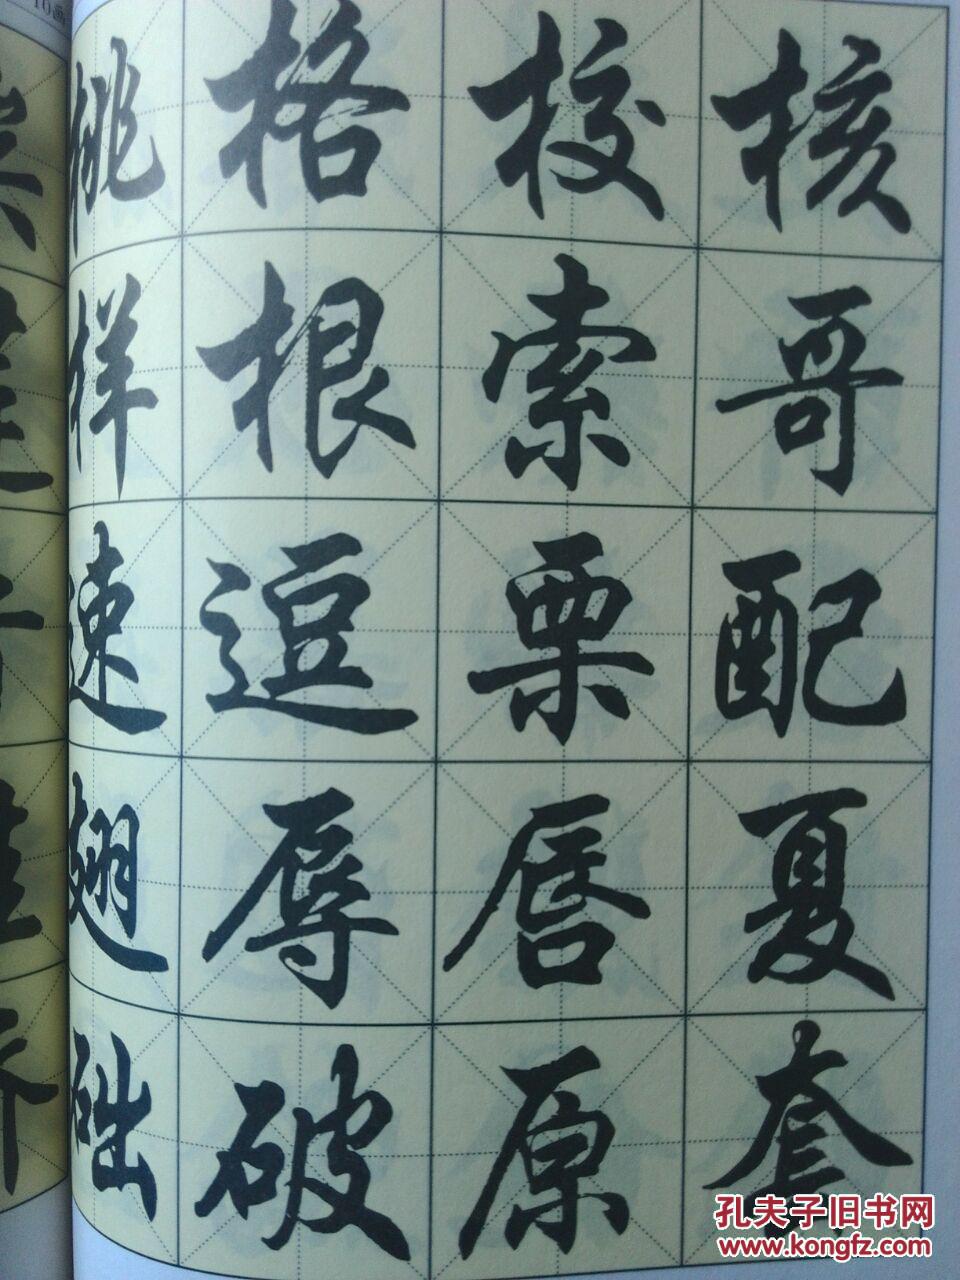 10画
桃格校核
样根索哥
速逗栗配
翅辱唇夏
础破原套
孔夫子旧书网
www.kongfz.com